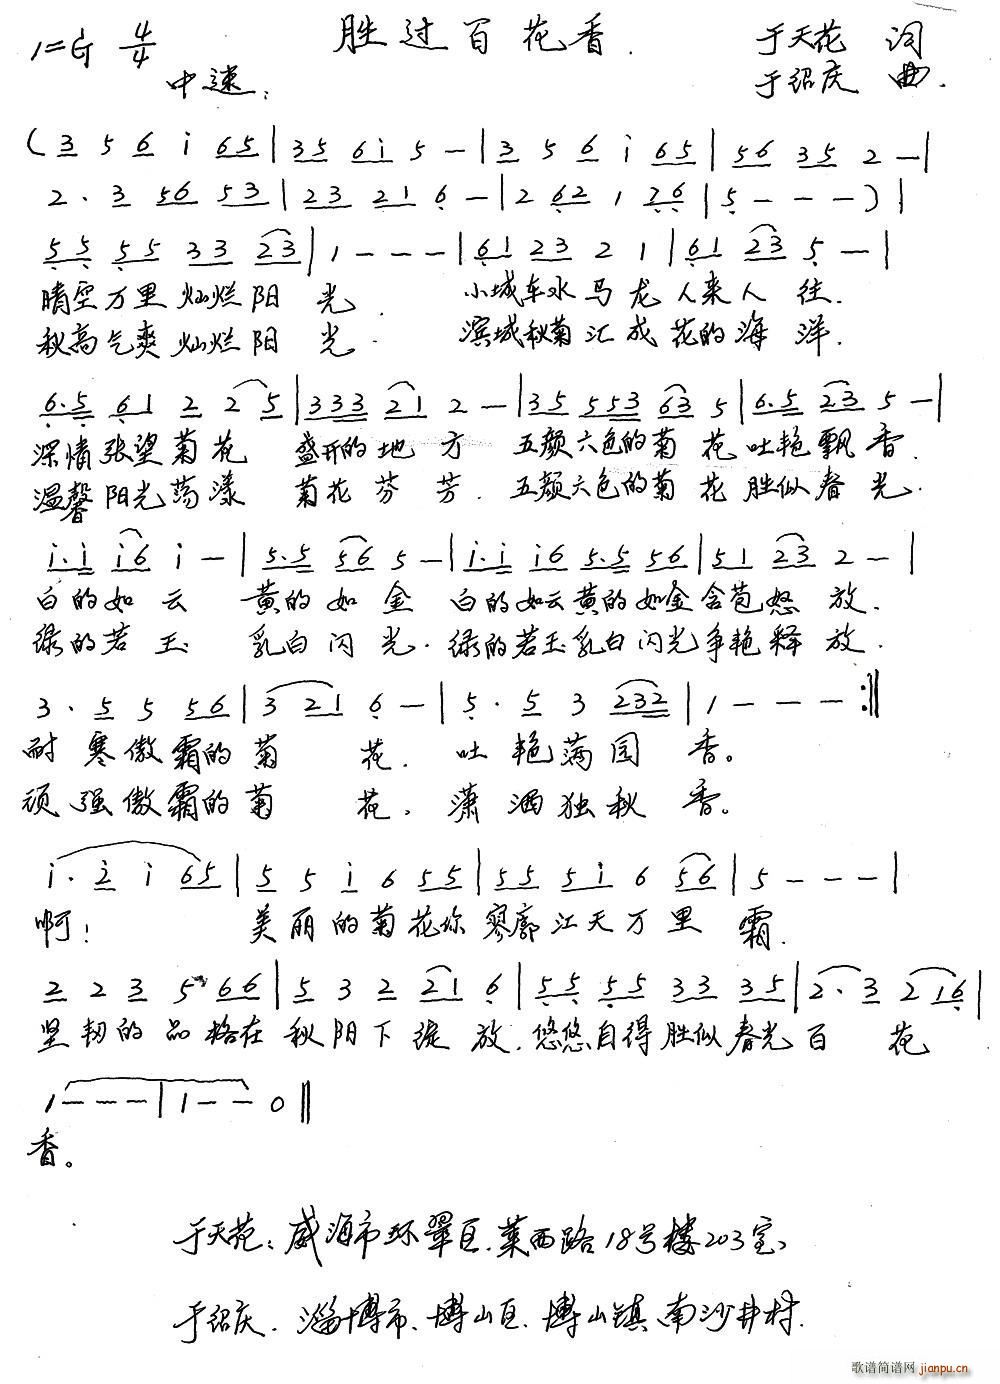 胜过百花香.
1=G 4/4 于天花 词
中速: 于绍庆 曲.
( 3 5 6 i 6 5 | 3 5 6 i 5 — | 3 5 6 i 6 5 | 5 6 3 5 2 — |
2 · 3 5 6 5 3 | 2 3 2 1 6 — | 2 6 2 1 7 6 | 5 - - - ) |
5 5 5 5 3 3 2 3 | 1 - - - | 6 1 2 3 2 1 | 6 1 2 3 5 — |
晴空万里灿烂阳 光. 小城车水马龙人来人 往.
秋高气爽灿烂阳 光. 滨城秋菊汇成花的海 洋.
6 · 5 6 1 2 2 5 | 3 3 3 2 1 2 — | 3 5 5 5 3 6 3 5 | 6 · 5 2 3 5 — |
深情张望菊花 盛开的地 方 五颜六色的菊 花吐艳飘香.
温馨阳光荡漾 菊花芬 芳. 五颜六色的菊 花胜似春光.
i · i i 6 i — | 5 · 5 5 6 5 — | i · i i 6 5 · 5 5 6 | 5 1 2 3 2 — |
白的如云 黄的如金 白的如云黄的如金含苞怒 放.
绿的若玉 乳白闪光. 绿的若玉乳白闪光争艳释 放.
3 · 5 5 5 6 | 3 2 1 6 — | 5 · 5 3 2 3 2 | 1 - - - :‖
耐寒傲霜的菊 花. 吐艳满园 香。
顽强傲霜的菊 花, 潇洒独秋 香。
i · 2 i 6 5 | 5 5 i 6 5 5 | 5 5 5 i 6 5 6 | 5 - - - |
啊! 美丽的菊花你寥廓江天万里 霜.
2 2 3 5 6 6 | 5 3 2 2 1 6 | 5 5 5 5 3 3 3 5 | 2 · 3 2 1 6 |
坚韧的品格在秋阳下绽 放. 悠悠自得胜似春光百 花
1 - - - | 1 - - 0 ‖
香。
于天花: 威海市环翠区.莱西路18号楼203室,
于绍庆. 淄博市、博山区.博山镇.南沙井村.
歌谱简谱网 jianpu.cn